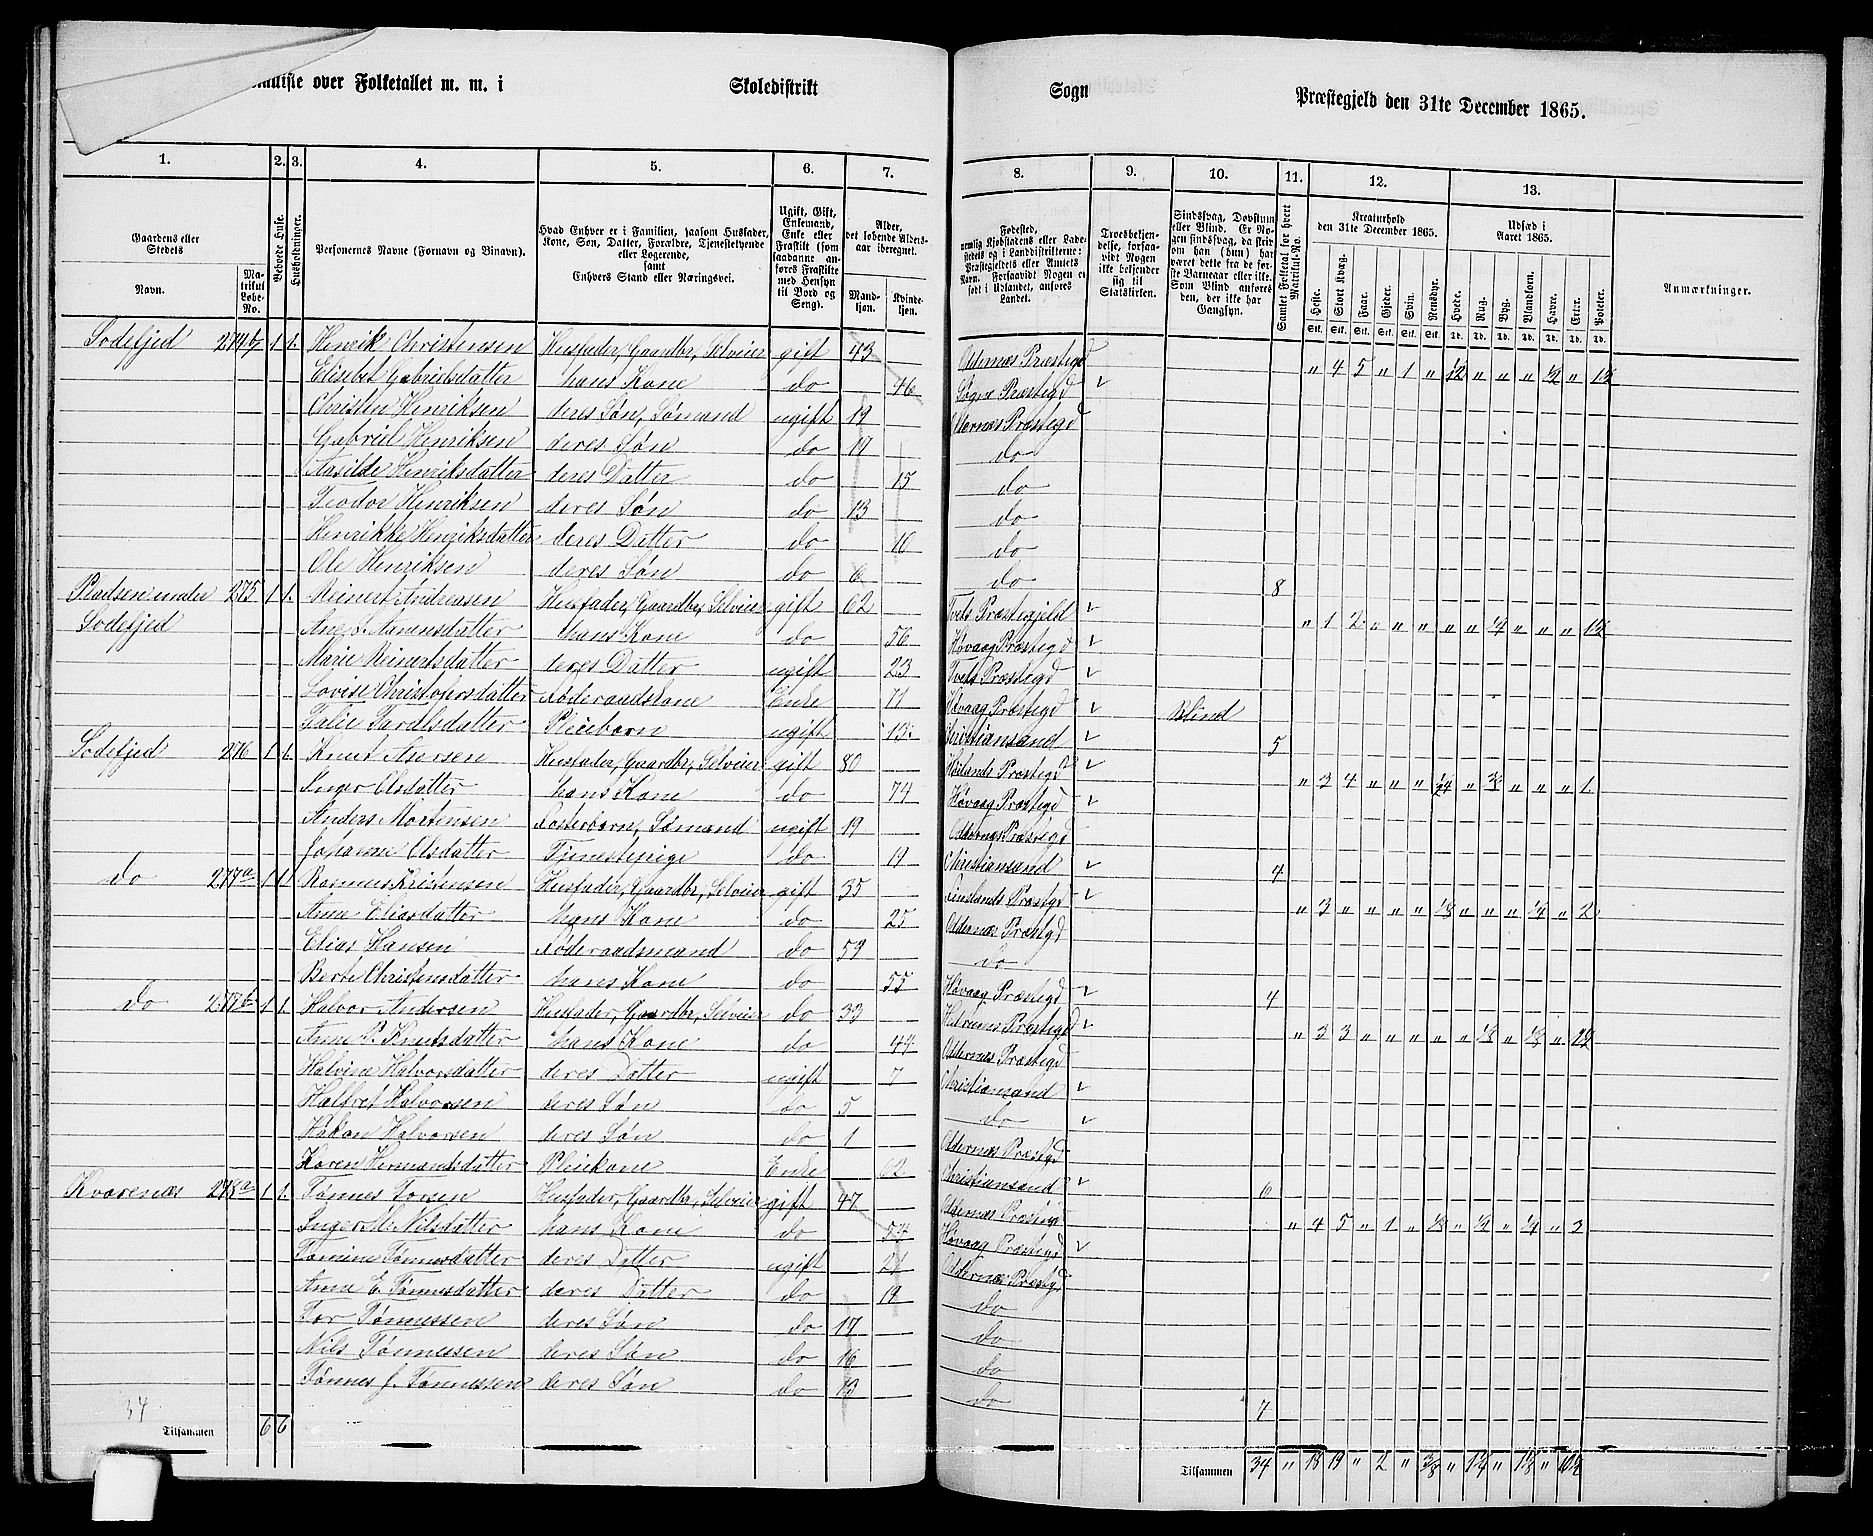 over Folketallet m. m. i Skoledistrikt Sogn Præstegjeld den 31te December 1865.
1. 2. 3. 4. 5. 6. 7. 8. 9. 10. 11. 12. 13.
Gaardens eller Stedets Navn. Matrikul Løbe-No. Beboede Huse. Husholdninger. Personernes Navne (Fornavn og Binavn). Hvad Enhver er i Familien, saasom Husfader, Kone, Søn, Datter, Forældre, Tjenestetyende eller Logerende, samt Enhvers Stand eller Næringsvei. Ugift, Gift, Enkemand, Enke eller Fraskilt (som saadanne anføres Fraskilte med Hensyn til Bord og Seng). Alder, det løbende Aldersaar iberegnet. Mandkjøn. Kvindekjøn.
Fødested, nemlig Kjøbstadens eller Ladestedets eller Landdistrikterne: Præstegjeldets eller Amtets Navn. Forsaavidt Nogen er født i Udlandet, anføres Landet. Troesbekjendelse, forsaavidt Nogen ikke bekjender sig til Statskirken. Sindssvag, Døvstum eller Blind. Samlet Folketal for hvert Matrikul-No. Kreaturhold den 31te December 1865. Heste. Stort Kvæg. Faar. Gjeder. Svin. Rensdyr. Udsæd i Aaret 1865. Hvede. Rug. Byg. Blandkorn. Havre. Erter. Poteter. Anmærkninger.
Sodefjed 274b 1 1. Henrik Christensen Husfader, Gaardbr, Selveier gift 43 Oddernæs Præstegd " 4 5 " 1 " 1/2 " " " 1/2 "
Elisebet Gabrielsdatter hans Kone do 46 Søgne Præstegd
Christen Henriksen deres Søn, Sømand ugift 19 Oddernæs Præstegd
Gabriel Henriksen deres Søn do 17 do
Aasilde Henriksdatter deres Datter do 15 do
Teodor Henriksen deres Søn do 13 do
Henrikke Henriksdatter deres Datter do 10 do
Ole Henriksen deres Søn do 6 do 8
Pladsen under 275 1 1. Reinert Andreasen Husfader, Gaardbr, Selveier gift 62 Tveits Præstegjeld " 1 2 " " " " " 1/4 " " "
Sodefjed Ane S. Aanensdatter hans Kone do 56 Høvaag Præstegd
Marie Reinertsdatter deres Datter ugift 23 Tveits Præstegd
Lovise Christofersdatter Føderaadskone Enke 71 Høvaag Præstegd Blind
Talie Taralsdatter Pleiebarn ugift 13 Christiansand 5
Sodefjed 276 1 1. Knut Aursen Husfader, Gaardbr, Selveier gift 80 Høilands Præstegd " 3 4 " " " 1/24 " " " " 1.
Inger Olsdatter hans Kone do 74 Høvaag Præstegd
Anders Mortensen Fosterbarn, Sømand ugift 19 Oddernæs Præstegd
Johanne Olsdatter Tjenestepige do 19 Christiansand 4
do 277a 1 1 Rasmus Kristensen Husfader, Gaardbr, Selveier gift 35 Finslands Præstegd " 3 " " " " 1/8 " " " 1/4 " 2
Anne Eliasdatter hans Kone do 25 Oddernæs Præstegd
Elias Hansen Føderaadsmand do 59 do
Berte Christensdatter hans Kone do 55 Høvaag Præstegd 4
do 277b 1 1. Halvor Andersen Husfader, Gaardbr, Selveier do 33 Præstegd " 3 3 " " " " 1/8 " 1/8 "
Anne B. Knutsdatter hans Kone do 44 Oddernæs Præstegd
Halvine Halvorsdatter deres Datter ugift 7 Christiansand
Halfret Halvorsen deres Søn do 5 do
Håkon Halvorsen deres Søn do 1 Oddernæs Præstegd
Karen Hermandsdatter Pleiekone Enke 62 Christiansand 6
Kvarenæs 278a 1 1. Tønnes Torsen Husfader, Gaardbr, Selveier gift 47 Oddernæs Præstegd " 4 5 " 1 " 1/8 " 1/4 " 1/4 " 3
Inger M. Nilsdatter hans Kone do 54 Høvaag Præstegd
Tomine Tønnesdatter deres Datter ugift 21 Oddernæs Præstegd
Anne E. Tønnesdatter deres Datter do 19 do
Tor Tønnessen deres Søn do 17 do
Nils Tønnessen deres Søn do 16 do
Tønnes J. Tønnessen deres Søn do 13 do 7
34
Tilsammen 6 6 Tilsammen 34 " 18 19 " 2 " 3/8 " 1 1/4 " 1 1/8 "